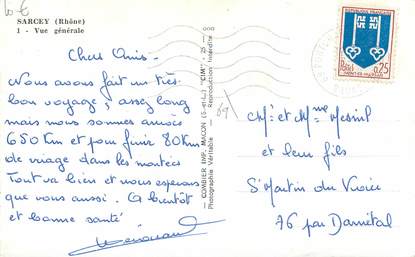 10 €
SARCEY (Rhône)
1 - Vue générale
Chers Amis.
Nous avons fait un très
bon voyage, assez long
mais nous sommes arrivés
650 Km et pour finir 80 Km
de virage dans les montées
Tout va bien et nous esperons
que vous aussi. A bientôt
et bonne santé
— COMBIER IMP. MACON (S-et-L) "CIM" - 25 -
Photographie Véritable - Reproduction Interdite
69
REPUBLIQUE FRANÇAISE
0,25
Mr et Mme Mesnil
et leur fils
St Martin du Vivier
76 par Darnétal